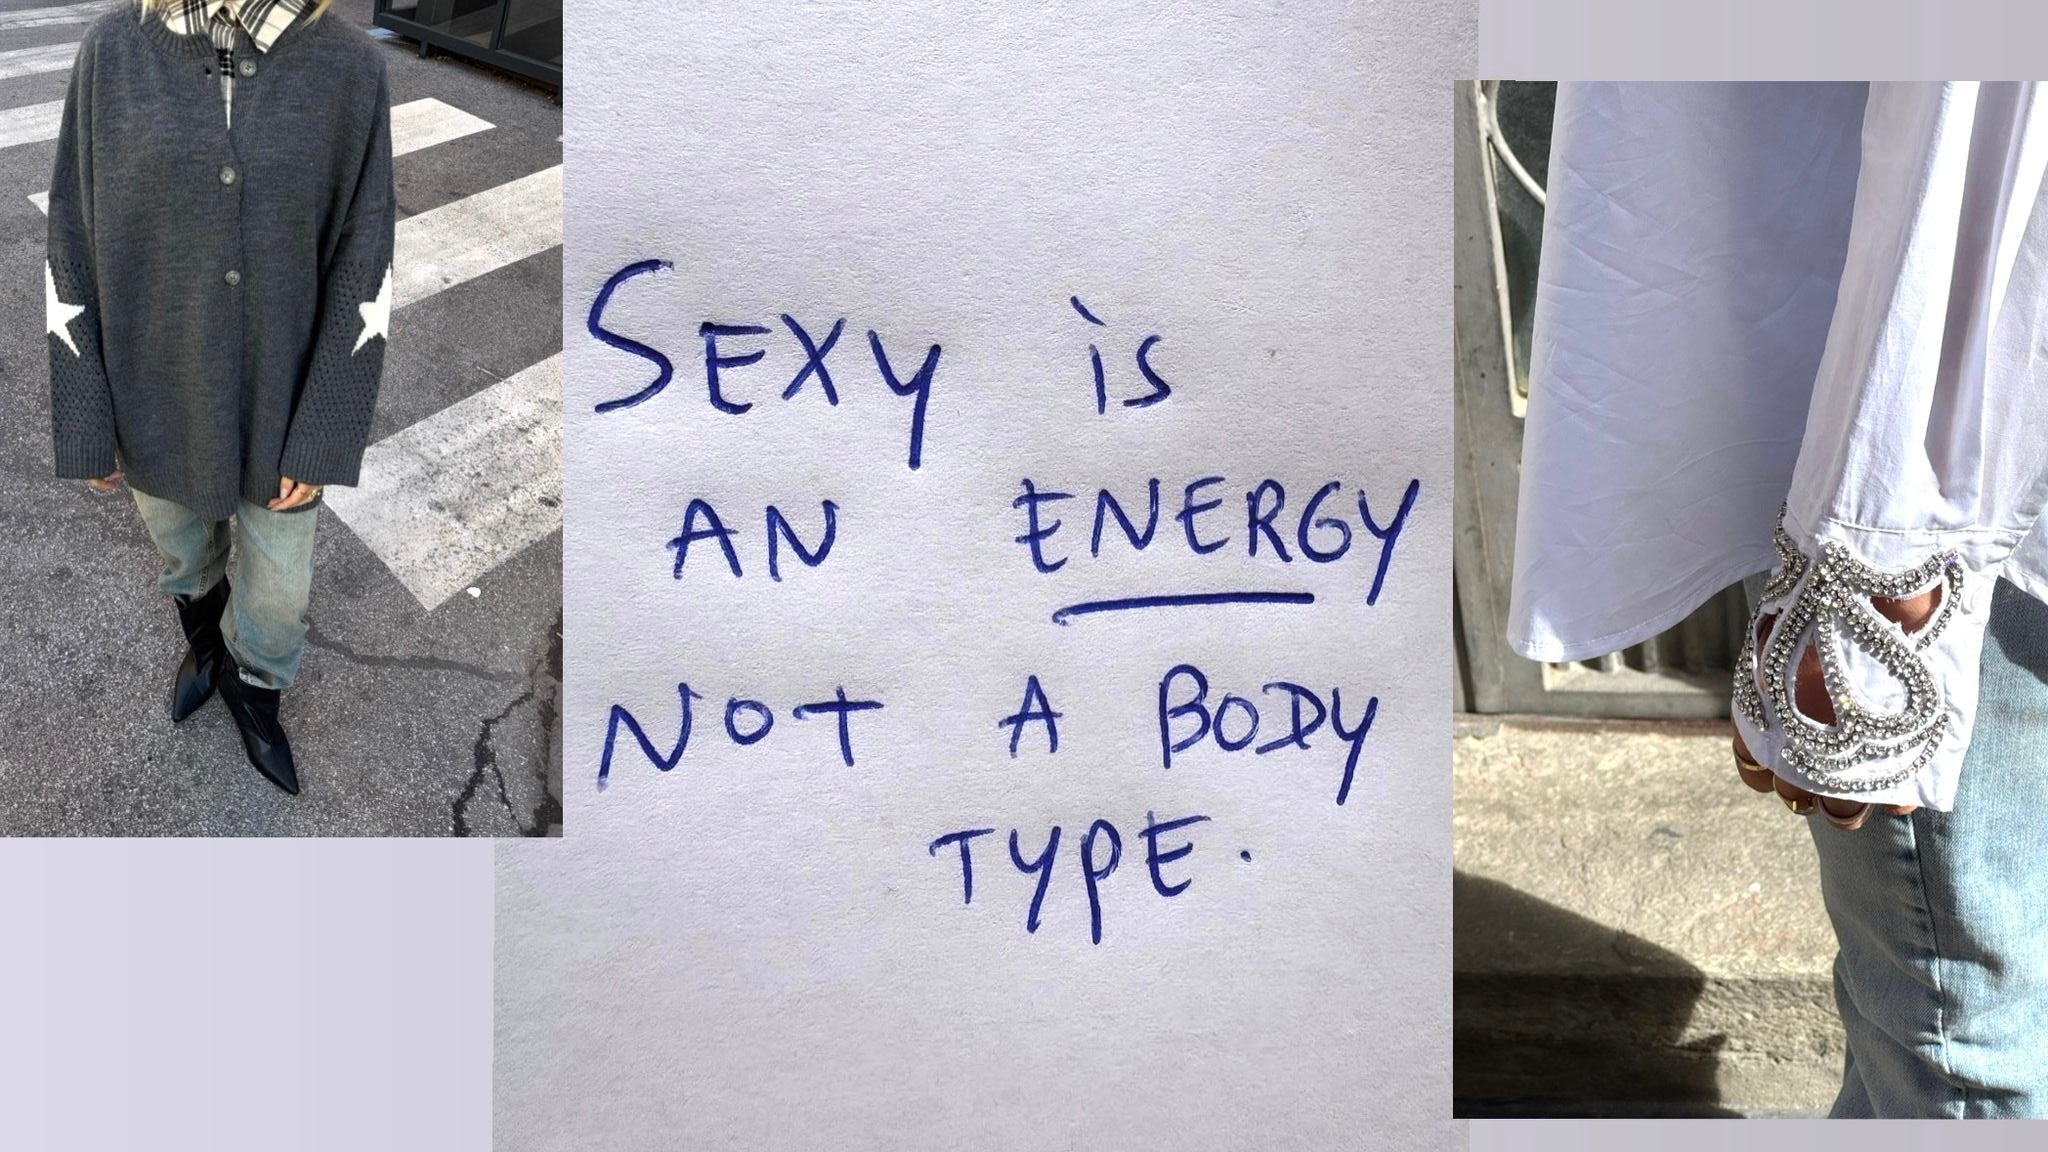 SEXY is
AN ENERGY
NOT A BODY
TYPE.